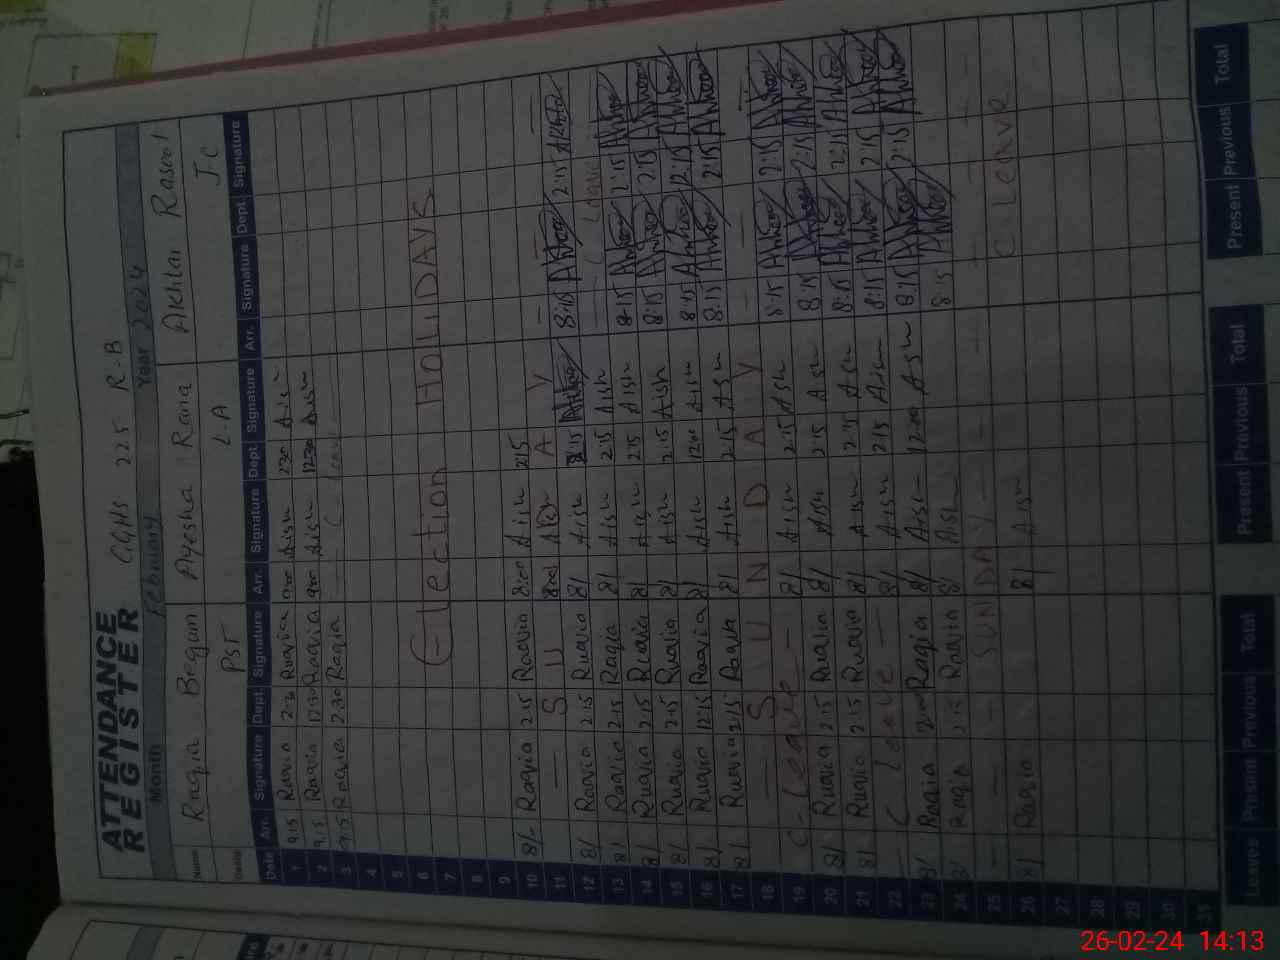 ATTENDANCE REGISTER
GGHS 225 R-B
Month February Year 2024
Name Raqia Begum Ayesha Rana Akhtar Rasool
Desig PST L-A J.C
Date Arr. Signature Dept. Signature Arr. Signature Dept. Signature Arr. Signature Dept. Signature
1 9:15 Raqia 2:30 Raqia 9:00 Aish 2:30 Aish
2 9:15 Raqia 12:30 Raqia 9:00 Aish 12:30 Aish
3 9:15 Raqia 2:30 Raqia C leave
4
5
6 Election HOLIDAYS
7
8
9
10 8/- Raqia 2:15 Raqia 8:00 Aish 2:15
11 S U N D A Y
12 8/ Raqia 2:15 Raqia 8/ Aish 2:15 8:15 2:15
13 8/ Raqia 2:15 Raqia 8/ Aish 2:15 Aish C Leave
14 8/ Raqia 2:15 Raqia 8/ Aish 2:15 Aish 8:15 2:15
15 8/ Raqia 2:15 Raqia 8/ Aish 2:15 Aish 8:15 2:15
16 8/ Raqia 12:15 Raqia 8/ Aish 12:00 Aish 8:15 12:15
17 8/ Raqia 2:15 Raqia 8/ Aish 2:15 Aish 8:15 2:15
18 S U N D A Y
19 C-Leave 8/ Aish 2:15 Aish 8:15 2:15
20 8/ Raqia 2:15 Raqia 8/ Aish 2:15 Aish 8:15 2:15
21 8/ Raqia 2:15 Raqia 8/ Aish 2:15 Aish 8:15 2:15
22 C Leave 8/ Aish 2:15 Aish 8:15 2:15
23 8/ Raqia Raqia 8/ Aish 12:00 Aish 8:15 2:15
24 8/ Raqia 2:15 Raqia 8/ Aish 8:15
25 SUNDAY
26 8/ Raqia 8/ Aish C Leave
27
28
29
30
31
Leaves Present Previous Total Present Previous Total Present Previous Total
26-02-24 14:13